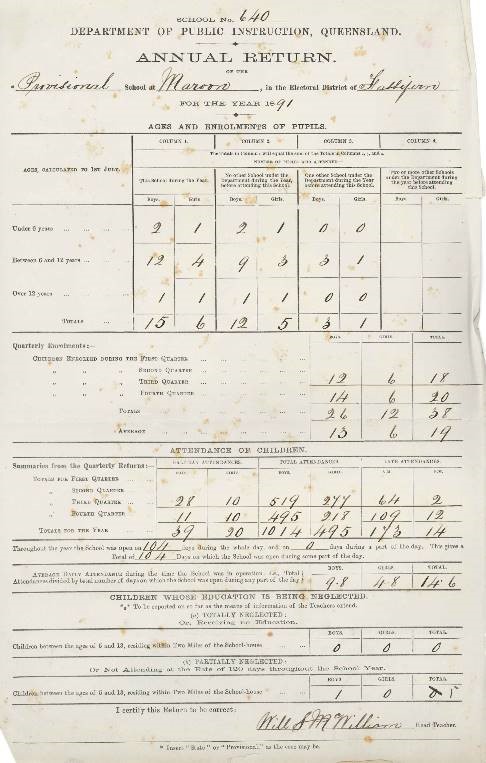 SCHOOL No. 640
DEPARTMENT OF PUBLIC INSTRUCTION, QUEENSLAND.
ANNUAL RETURN.
OF THE
* Provisional School at Maroon, in the Electoral District of Fassifern
FOR THE YEAR 1891
AGES AND ENROLMENTS OF PUPILS.
COLUMN 1. COLUMN 2. COLUMN 3. COLUMN 4.
AGES, CALCULATED TO 1ST JULY.
This School during the Year. No other School under the Department during the Year, before attending this School. One other School under the Department during the Year before attending this School. Two or more other Schools under the Department during the year before attending this School.
Boys. Girls. Boys. Girls. Boys. Girls. Boys. Girls.
Under 6 years 2 1 2 1 0 0
Between 6 and 12 years 12 4 9 3 3 1
Over 12 years 1 1 1 1 0 0
TOTALS 15 6 12 5 3 1
Quarterly Enrolments:— BOYS. GIRLS. TOTAL.
CHILDREN ENROLLED DURING THE FIRST QUARTER
" " " SECOND QUARTER
" " " THIRD QUARTER 12 6 18
" " " FOURTH QUARTER 14 6 20
TOTALS 26 12 38
AVERAGE 13 6 19
ATTENDANCE OF CHILDREN.
Summaries from the Quarterly Returns:— HALF-DAY ATTENDANCES. TOTAL ATTENDANCES. LATE ATTENDANCES.
BOYS. GIRLS. BOYS. GIRLS. A.M. P.M.
TOTALS FOR FIRST QUARTER
" SECOND QUARTER
" THIRD QUARTER 28 10 519 277 64 2
" FOURTH QUARTER 11 10 495 218 109 12
TOTALS FOR THE YEAR 39 20 1014 495 173 14
Throughout the year the School was open on 104 days during the whole day, and on 0 days during a part of the day. This gives a
Total of 104 Days on which the School was open during some part of the day.
BOYS. GIRLS. TOTAL.
AVERAGE DAILY ATTENDANCE during the time the School was in operation (i.e., Total
Attendances divided by total number of days on which the School was open during any part of the day) 9.8 4.8 14.6
CHILDREN WHOSE EDUCATION IS BEING NEGLECTED.
To be reported on so far as the means of information of the Teachers extend.
(a) TOTALLY NEGLECTED:
Or, Receiving no Education.
BOYS. GIRLS. TOTAL.
Children between the ages of 6 and 13, residing within Two Miles of the School-house 0 0 0
(b) PARTIALLY NEGLECTED:
Or Not Attending at the Rate of 120 days throughout the School Year.
BOYS. GIRLS. TOTAL.
Children between the ages of 6 and 13, residing within Two Miles of the School-house 1 0 1
I certify this Return to be correct:
Will S McWilliam Head Teacher.
* Insert "State" or "Provisional," as the case may be.